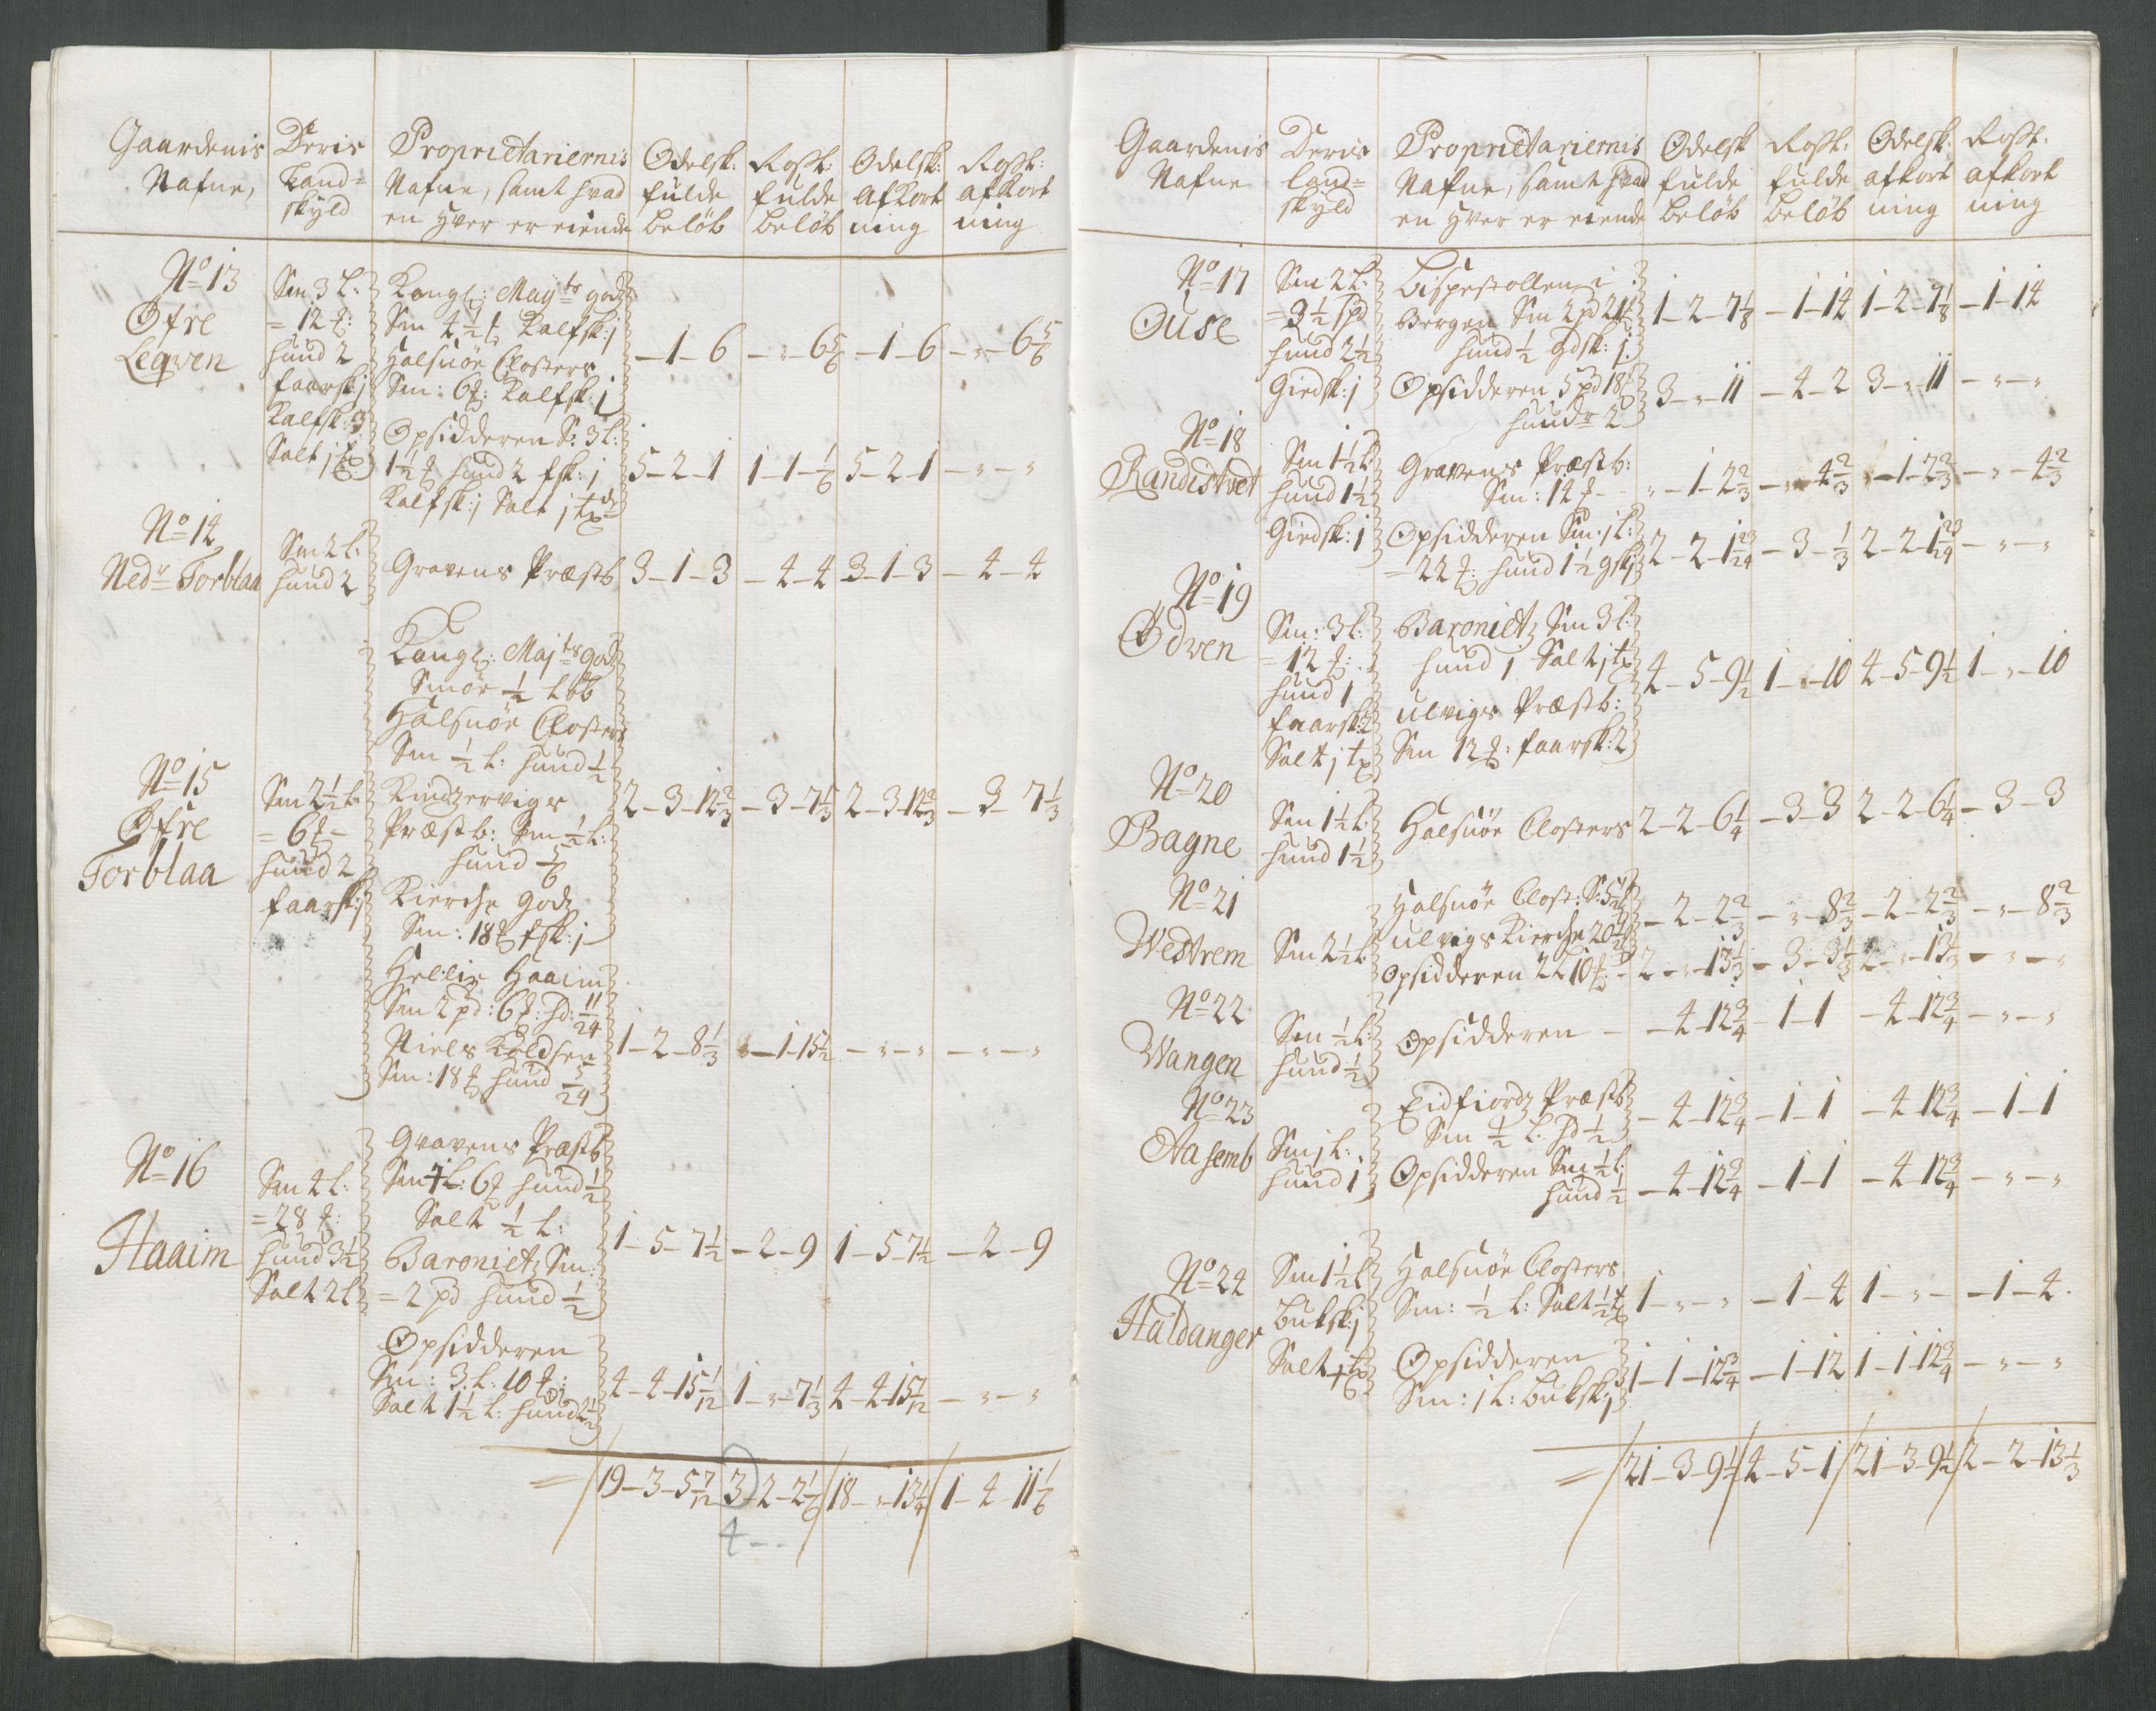 Gaardenis Nafne,
Deris Land=skyld
Proprietariernis Nafne, samt hvad en hver er eiende
Odelsk: fulde beløb
Rostt: fulde beløb
Odelsk: afkort ning
Rostt: afkort ning
No 13
Øfre Leqven
Sm 3 l:
= 12 :
hund 2
faarsk: j
Kalfsk: 3
Salt j
Kongl: Mayts godz
Sm 4 1/2 Kalfsk: j
Halsnøe Closters
Sm: 6 : Kalfsk: j
– 1 – 6 – „ – 6 5/6 – 1 – 6 – „ – 6 5/6
Opsidderen S: 3 l:
1 1/2 hund 2 fsk: j
Kalfsk: j Salt j
5 – 2 – 1 1 – 1 – 1/6 5 – 2 – 1 – „ – „
No 14
Nedr Torblaa
Sm 2 l:
hund 2
Gravens Præstb
3 – 1 – 3 – 4 – 4 3 – 1 – 3 – 4 – 4
No 15
Øfre Torblaa
Sm 2 1/2 l
= 6 –
hund 2
faarsk: j
Kongl: Majts godz
Smør 1/2
Halsnøe Closters
Sm 1/2 l: hund 1/2
Kindzervigs
Præstb: Sm 1/2 l:
hund
Kierche godz
Sm: 18 fsk: j
2 – 3 – 12 2/3 – 3 – 7 1/3 2 – 3 – 12 2/3 – 3 – 7 1/3
Hellie Haaim
Sm 2 pd: 6 : hd: 11/24
Niels
Sm: 18 hund 5/24
1 – 2 – 8 1/3 „ – 1 – 15 1/2 – „ – „ – „ – „
No 16
Haaim
Sm 4 l:
= 28 :
hund 3 1/2
Salt 2 l
Gravens Præstb
6 hund 1/2
Salt 1/2 l:
Baronietz Sm:
= 2 pd hund 1/2
1 – 5 – 7 1/2 – 2 – 9 1 – 5 – 7 1/2 – 2 – 9
Opsidderen
Sm: 3 l: 10 :
Salt 1 1/2 l: hund 2 1/2
4 – 4 – 15 1/12 1 – „ – 7 1/3 4 – 4 – 15 1/12 – „ – „
= / 19 – 3 – 5 7/12 3 – 2 – 2 1/6 / 18 – „ – 13 1/4 / 1 – 4 – 11 1/6
4 – –
Gaardenis Nafne
Deris land=skyld
Proprietariernis Nafne, samt hvad en hver er eiende
Odelsk fulde beløb
Rostt: fulde beløb
Odelsk: afkort ning
Rostt: afkort ning
No 17
Ouse
Sm 2 l:
= 3 1/2 spd
hund 2 1/2
Giedsk: j
Bispestollen i
Bergen Sm 2 pd 21
hund 1/2 gdsk: j
1 – 2 – 7 1/8 – 1 – 14 1 – 2 – 7 1/8 – 1 – 14
Opsidderen 5 pd 18
hundr 2
3 – „ – 11 – 4 – 2 3 – „ – 11 – „ – „
No 18
Randistvet
Sm 1 1/2 l:
hund 1 1/2
Giedsk: j
Gravens Præstb:
Sm: 14 –
„ – 1 – 2 2/3 – „ – 4 2/3 – 1 – 2 2/3 – „ – 4 2/3
Opsidderen Sm: j l:
= 22 : hund 1 1/2 gsk: j
2 – 2 – 1 23/24 – 3 – 1/3 2 – 2 – 1 23/24 – „ – „
No 19
Ødven
Sm: 3 l:
= 12 :
hund 1
faarsk: 2
Salt j
Baronietz Sm 3 l:
hund 1 Salt j
Ulvigs Præstb:
Sm 12 : faarsk: 2
4 – 5 – 9 1/2 1 – „ – 10 4 – 5 – 9 1/2 1 – „ – 10
No 20
Bagne
Sm 1 1/2 l:
hund 1 1/2
Halsnøe Closters
2 – 2 – 6 1/4 – 3 – 3 2 – 2 – 6 1/4 – 3 – 3
No 21
Westrem
Sm 2 1/2 l:
Halsnøe Clost: S:
Ulvigs Kierche 20
– 2 – 2 2/3 – „ – 8 2/3 – 2 – 2 2/3 – „ – 8 2/3
Opsidderen 2 l 10 :
2 – „ – 13 1/3 – 3 – 3 1/3 2 – „ – 13 1/3 – „ – „
No 22
Wangen
Sm 1/2 l:
hund 1/2
Opsidderen –
– 4 – 12 3/4 – 1 – 1 – 4 – 12 3/4 – „ – „
No 23
Aasemb
Sm j l:
hund 1
Eidfiordz Præstb
Sm 1/2 l: hd 1/2
– 4 – 12 3/4 – 1 – 1 – 4 – 12 3/4 – 1 – 1
Opsidderen Sm 1/2 l:
hund 1/2
– 4 – 12 3/4 – 1 – 1 – 4 – 12 3/4 – „ – „
No 24
Haldanger
Sm 1 1/2 l
buksk: j
Salt
Halsnøe Closters
Sm: 1/2 l: Salt 1/2
1 – „ – „ – 1 – 4 1 – „ – – 1 – 4
Opsidderen
Sm: j l: buksk: j
1 – 1 – 12 3/4 – 1 – 12 1 – 1 – 12 3/4 – „ – „
= / 21 – 3 – 9 1/2 / 4 – 5 – 1 / 21 – 3 – 9 1/2 / 2 – 2 – 13 1/3